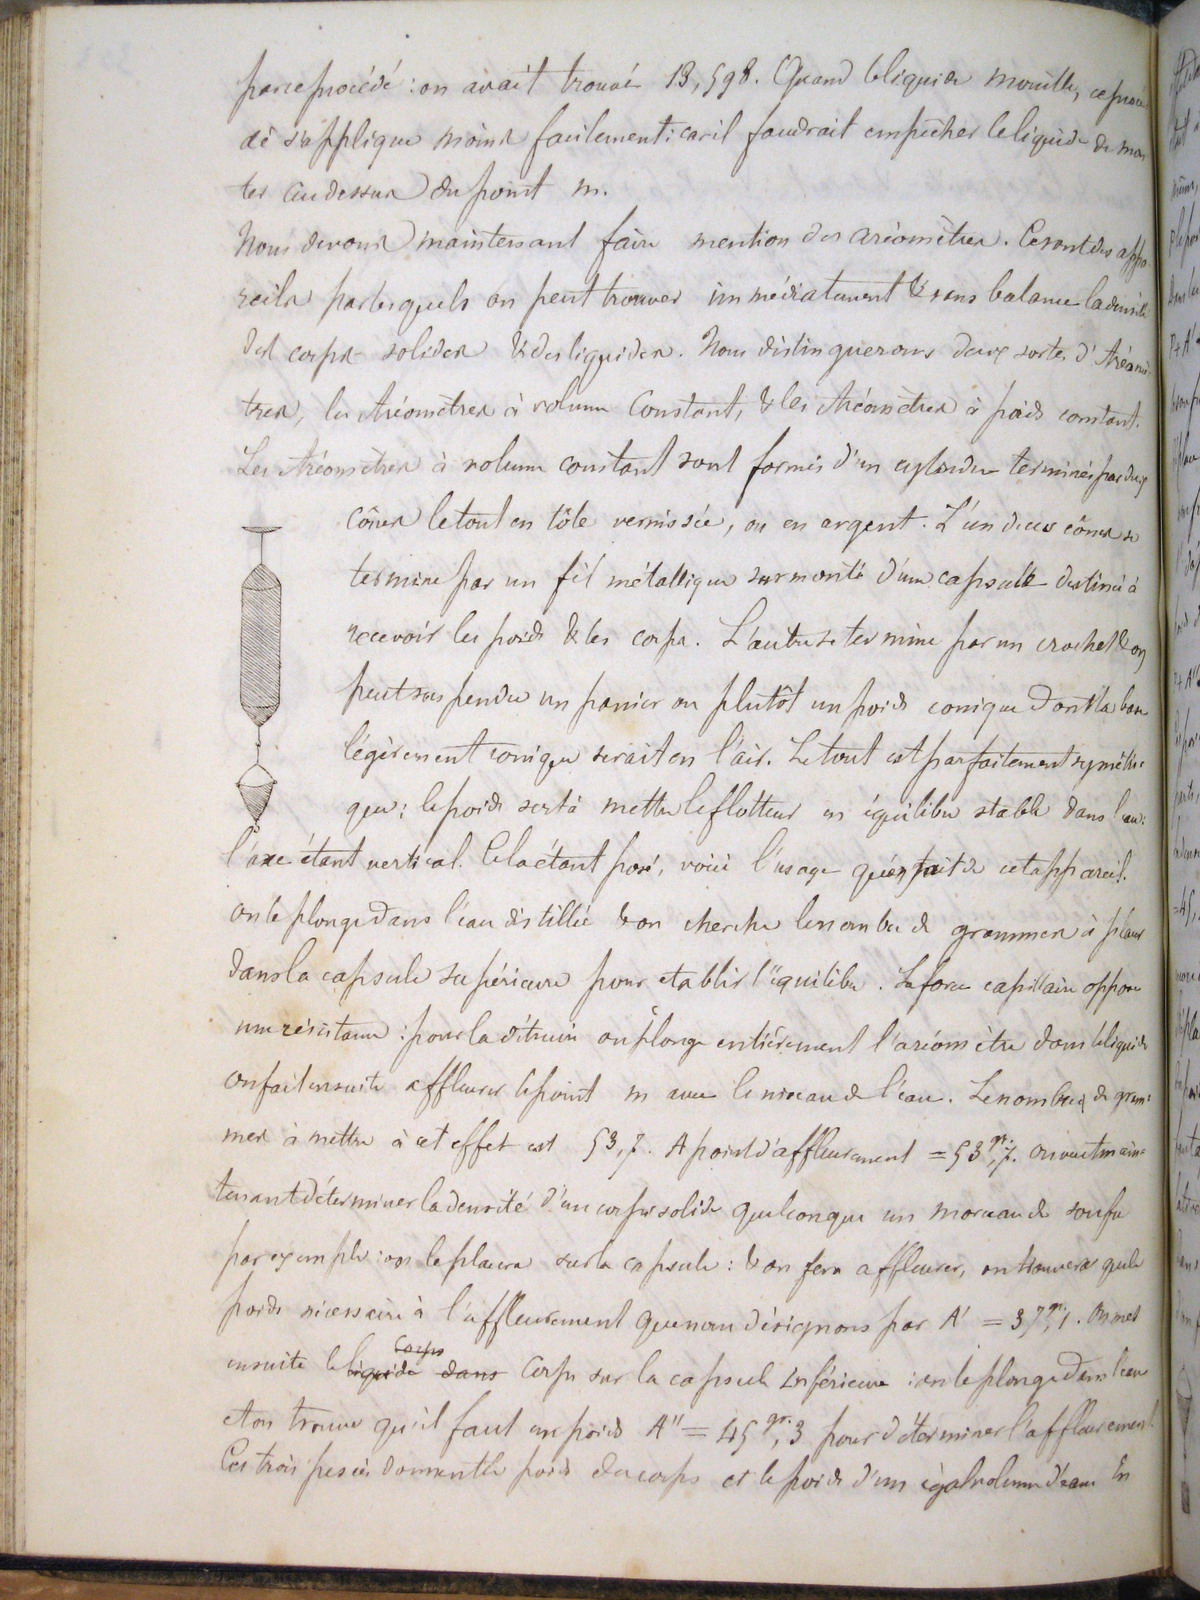 par ce procédé : on avait trouvé 13,598. Quand le liquide mouille, ce procé
dé s'applique moins facilement : car il faudrait empêcher le liquide de mon
ter au dessus du point m.
Nous devons maintenant faire mention des aréomètres. Ce sont des appa
reils par lesquels on peut trouver immédiatement & sans balance la densité
des corps solides & des liquides. Nous distinguerons deux sortes d'Aréomè-
tres, les Aréomètres à volume constant, & les Aréomètres à poids constant.
Les Aréomètres à volume constant sont formés d'un cylindre terminé par deux
cônes le tout en tôle vernissée, ou en argent. L'un de ces cônes se
termine par un fil métallique surmonté d'une capsule destinée à
recevoir les poids & les corps. L'autre se termine par un crochet & on
peut suspendre un panier ou plutôt un poids conique dont la base
légèrement conique serait en l'air. Le tout est parfaitement symétri=
que : le poids sert à mettre le flotteur en équilibre stable dans l'eau :
l'axe étant vertical. Cela étant posé, voici l'usage qu'on fait de cet appareil.
on le plonge dans l'eau distillée & on cherche le nombre de grammes à placer
dans la capsule supérieure pour etablir l'équilibre. La force capillaire oppose
une résistance : pour la détruire on plonge entièrement l'aréomètre dans le liquide
on fait ensuite affleurer le point m avec le niveau de l'eau. Le nombre de gram=
mes à mettre à cet effet est 53,7. A point d'affleurement = 53gr,7. on veut main=
tenant déterminer la densité d'un corps solide quelconque un morceau de soufre
par exemple : on le placera sur la capsule : & on fera affleurer, on trouvera que le
poids nécessaire à l'affleurement que nous désignons par A' = 37gr,1. On met
ensuite le liquide corps dans Corps sur la capsule inférieure : on le plonge dans l'eau
et on trouve qu'il faut un poids A'' = 45gr,3 pour déterminer l'affleurement.
Ces trois pesées donnent le poids du corps et le poids d'un égal volume d'eau En